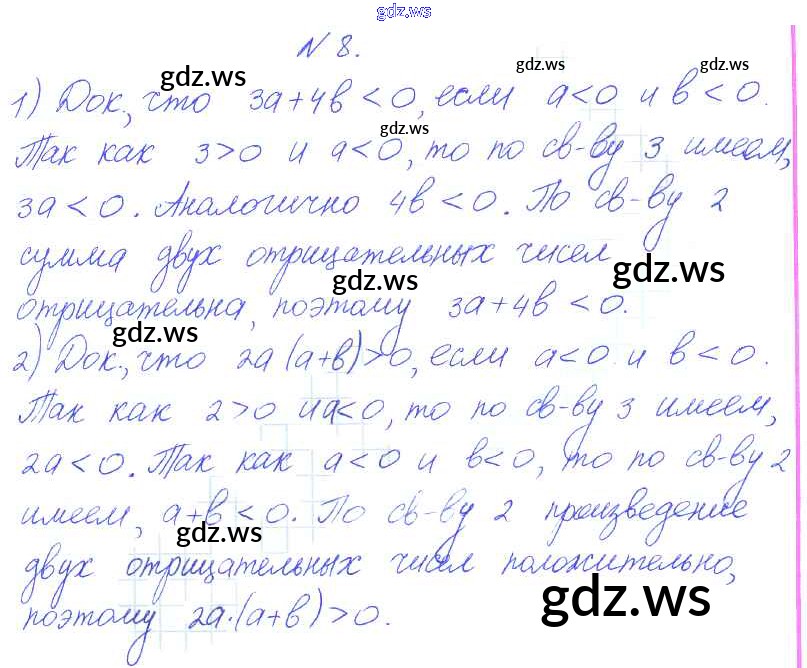 gdz.ws
N 8.
gdz.ws gdz.ws gdz.ws
1) Док., что 3a+4b<0, если a<0 и b<0.
gdz.ws
Так как 3>0 и a<0, то по св-ву 3 имеем,
3a<0. Аналогично 4b<0. По св-ву 2
сумма двух отрицательных чисел
gdz.ws gdz.ws
отрицательна, поэтому 3a+4b<0.
gdz.ws
2) Док., что 2a(a+b)>0, если a<0 и b<0.
Так как 2>0 и a<0, то по св-ву 3 имеем,
2a<0. Так как a<0 и b<0, то по св-ву 2
имеем, a+b<0. По св-ву 2 произведение
gdz.ws
двух отрицательных чисел положительно,
gdz.ws
поэтому 2a·(a+b)>0.